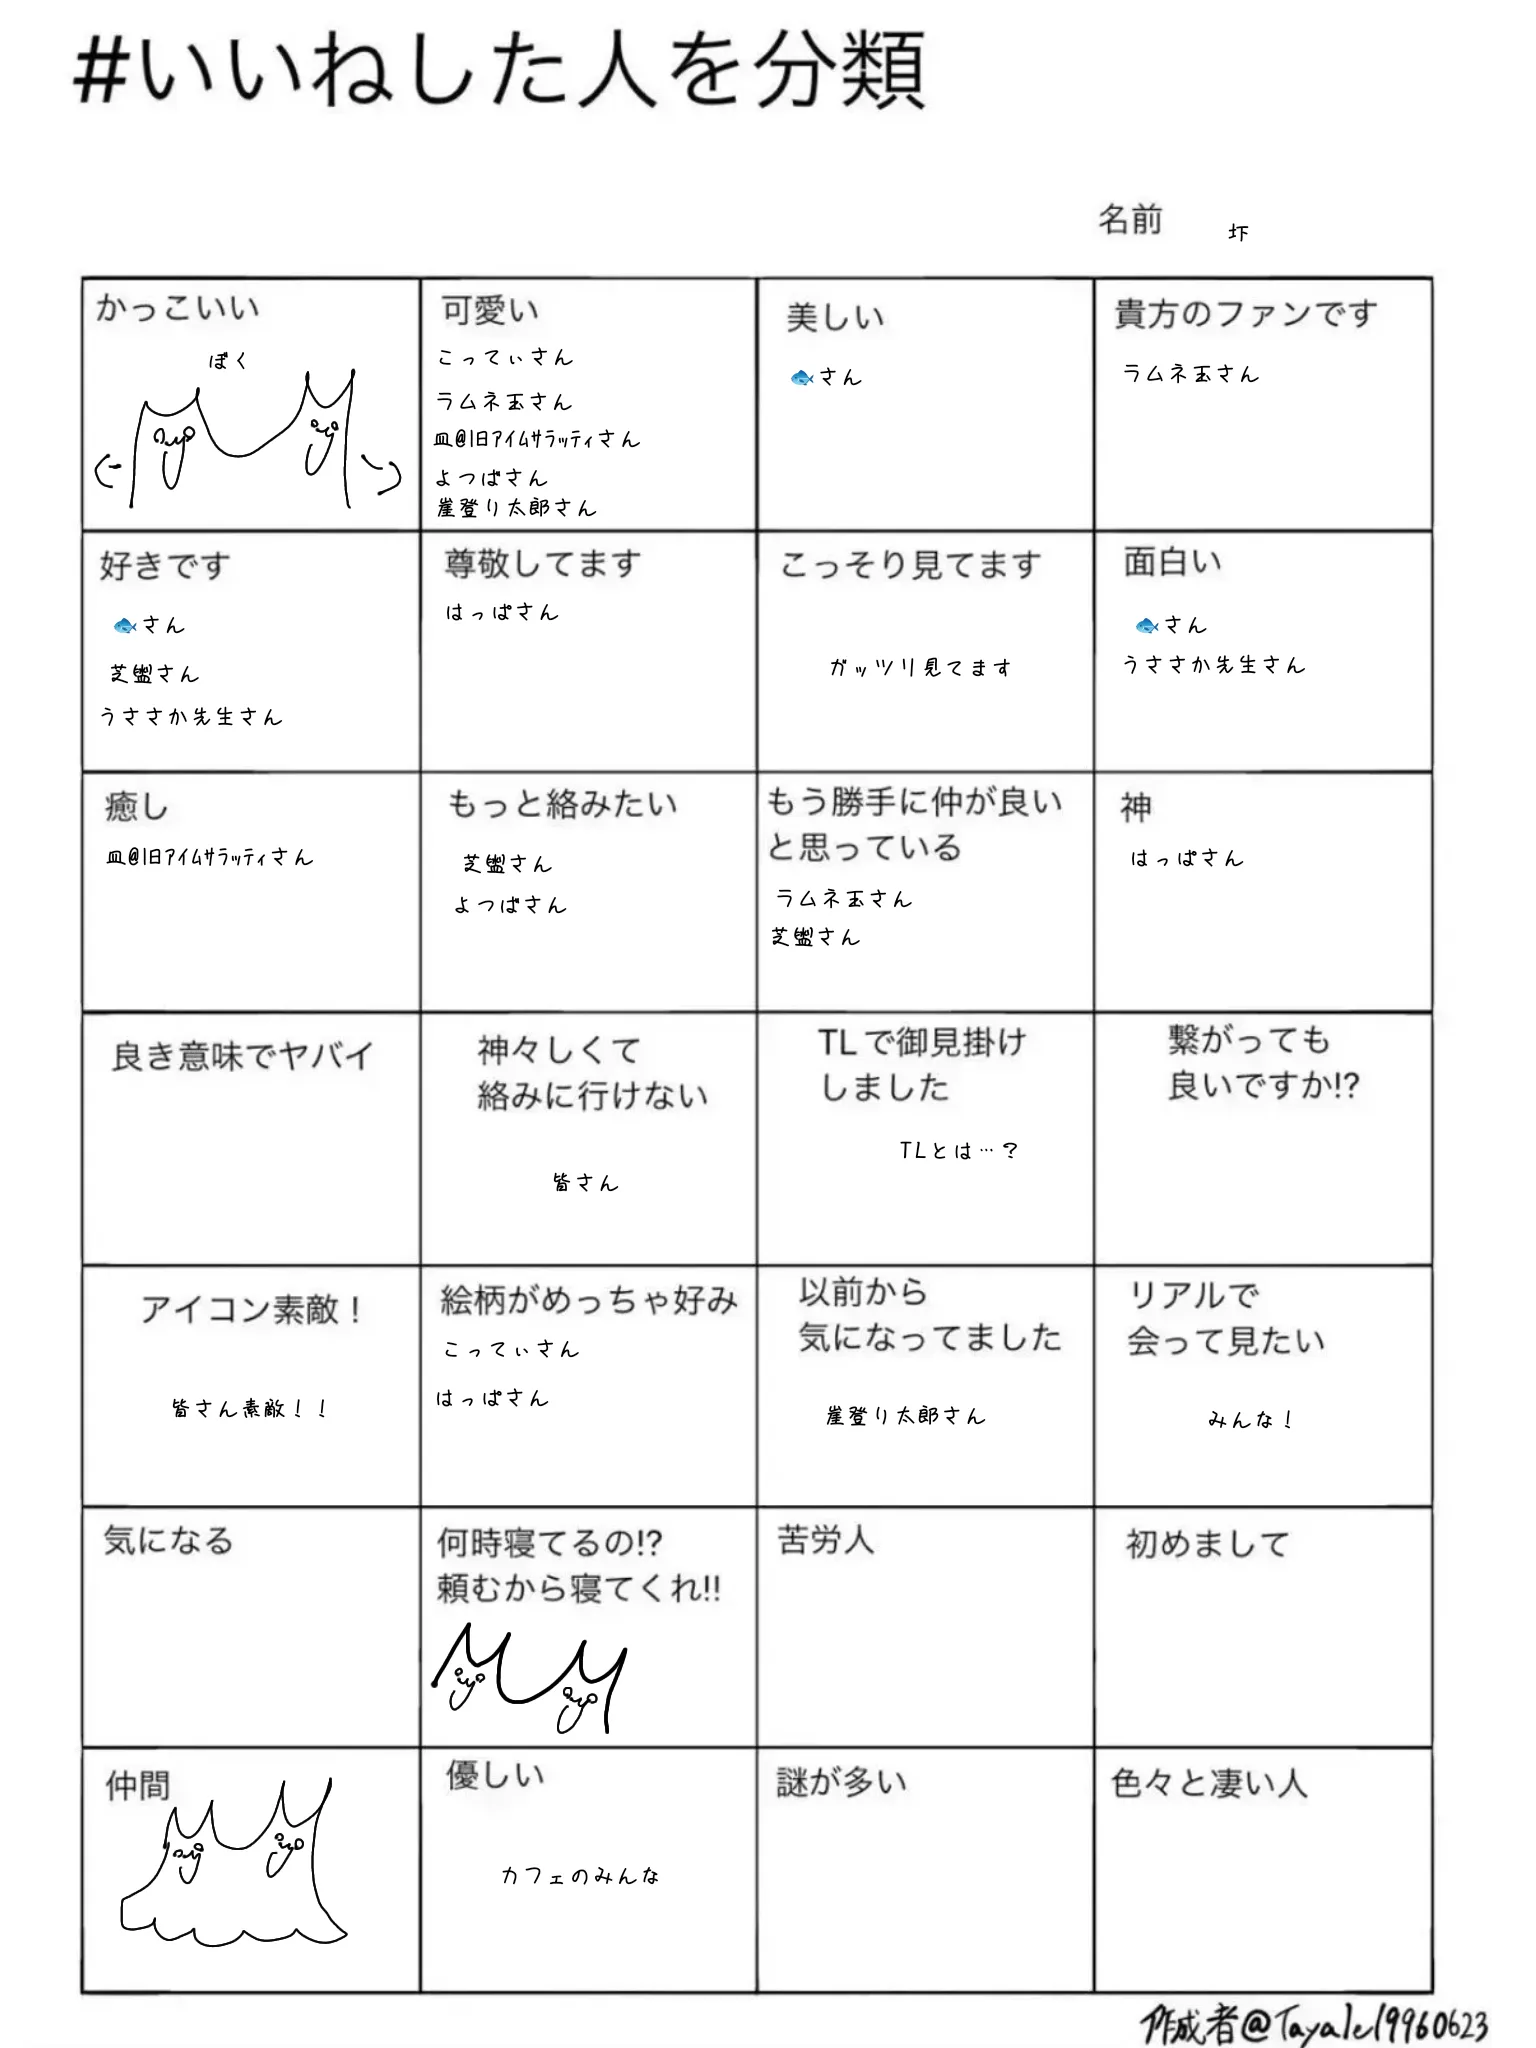 #いいねした人を分類
名前 圷
かっこいい
ぼく
可愛い
こってぃさん
ラムネ玉さん
皿@1日ｱｲﾑｻﾗｯﾃｨさん
よつばさん
崖登り太郎さん
美しい
🐟さん
貴方のファンです
ラムネ玉さん
好きです
🐟さん
芝さん
うささか先生さん
尊敬してます
はっぱさん
こっそり見てます
ガッツリ見てます
面白い
🐟さん
うささか先生さん
癒し
皿@1日ｱｲﾑｻﾗｯﾃｨさん
もっと絡みたい
芝さん
よつばさん
もう勝手に仲が良い
と思っている
ラムネ玉さん
芝さん
神
はっぱさん
良き意味でヤバイ
神々しくて
絡みに行けない
皆さん
TLで御見掛け
しました
TLとは…？
繋がっても
良いですか!?
アイコン素敵！
皆さん素敵！！
絵柄がめっちゃ好み
こってぃさん
はっぱさん
以前から
気になってました
崖登り太郎さん
リアルで
会って見たい
みんな！
気になる
何時寝てるの!?
頼むから寝てくれ!!
苦労人
初めまして
仲間
優しい
カフェのみんな
謎が多い
色々と凄い人
作成者@Tayale19960623